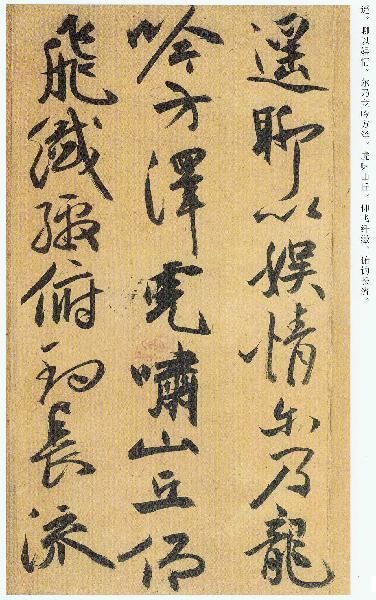 遙聊以娛情尔乃龍
吟方澤虎嘯山丘仰
飛纖繳俯釣長流
遥。聊以娱情。尔乃龙吟方泽。虎啸山丘。仰飞纤缴。俯钓长流。